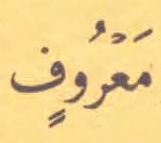 مَعْرُوفٍ